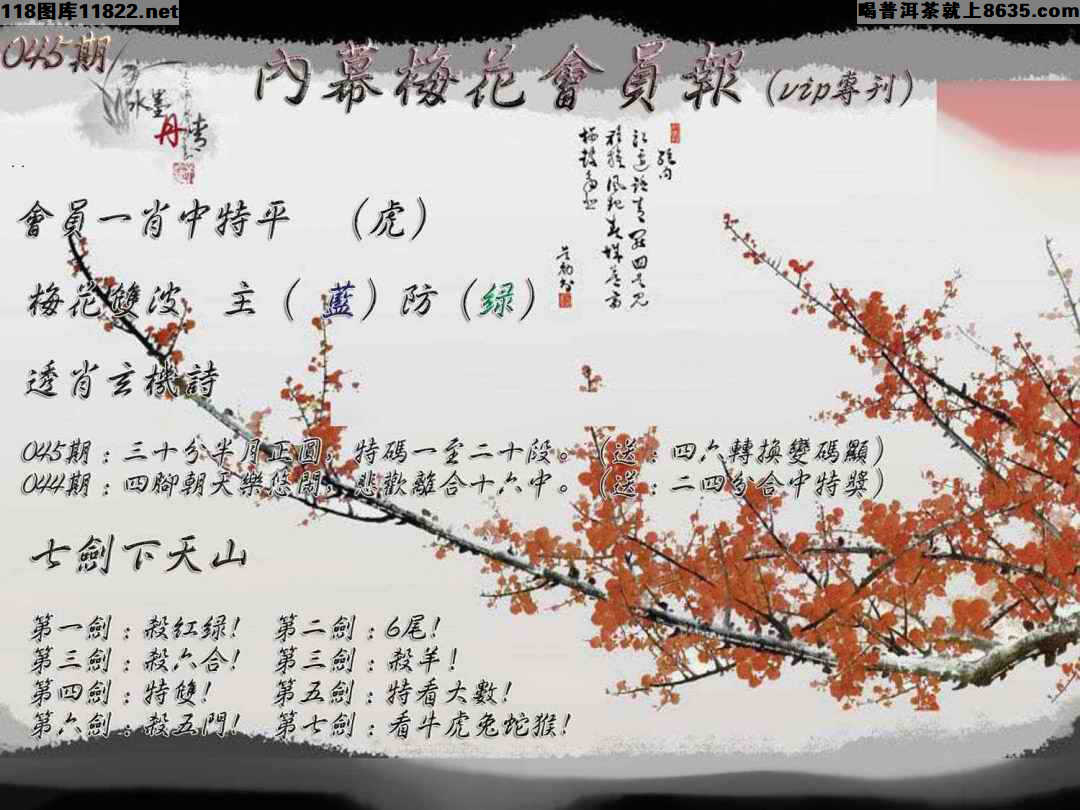 118图库11822.net
喝普洱茶就上8635.com
045期
內幕梅花會員報（vip專刊）
水墨
丹青
會員一肖中特平 （虎）
梅花雙波 主（藍）防（绿）
透肖玄機詩
045期：三十分半月正圓，特碼一至二十段。（送：四六轉換變碼顯）
044期：四腳朝天樂悠閒，悲歡離合十六中。（送：二四分合中特獎）
七劍下天山
第一劍：殺紅绿！ 第二劍：6尾！
第三劍：殺六合！ 第三劍：殺羊！
第四劍：特雙！ 第五劍：特看大數！
第六劍：殺五門！ 第七劍：看牛虎兔蛇猴！